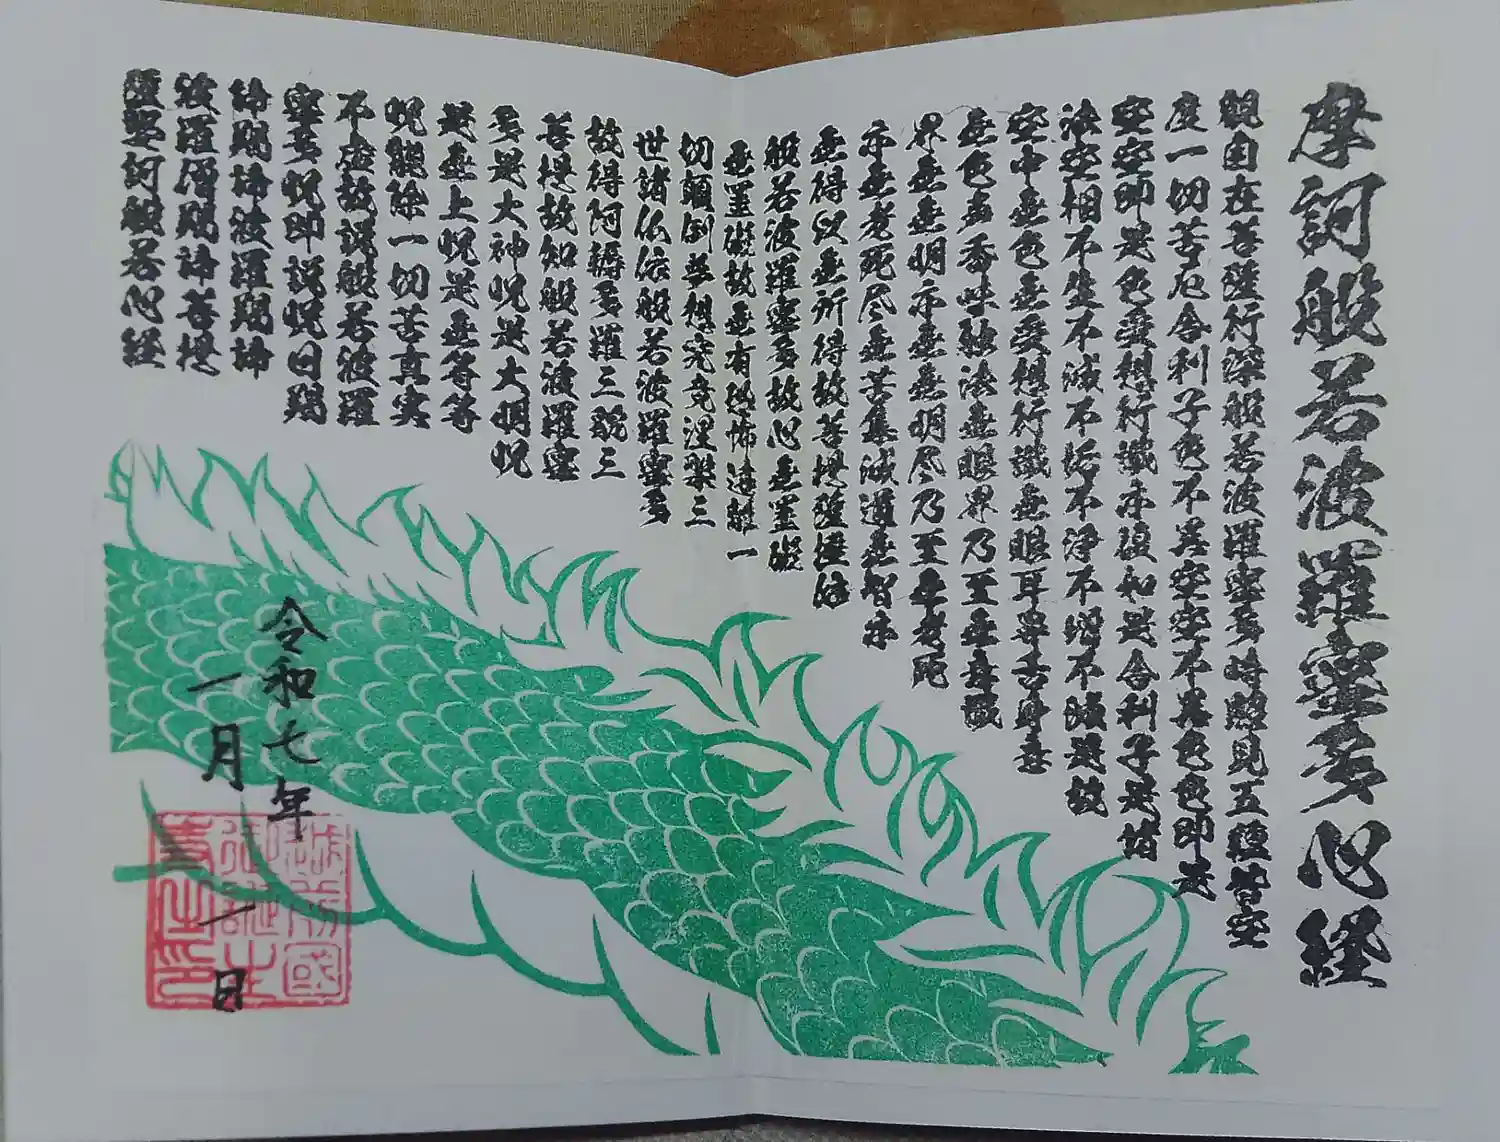 摩訶般若波羅蜜多心経
観自在菩薩行深般若波羅蜜多時照見五蘊皆空
度一切苦厄舎利子色不異空空不異色色即是
空空即是色受想行識亦復如是舎利子是諸
法空相不生不滅不垢不浄不増不減是故
空中無色無受想行識無眼耳鼻舌身意
無色声香味触法無眼界乃至無意識
界無無明亦無無明尽乃至無老死
亦無老死尽無苦集滅道無智亦
無得以無所得故菩提薩埵依
般若波羅蜜多故心無罣礙
無罣礙故無有恐怖遠離一
切顛倒夢想究竟涅槃三
世諸仏依般若波羅蜜多
故得阿耨多羅三藐三
菩提故知般若波羅蜜
多是大神呪是大明呪
是無上呪是無等等
呪能除一切苦真実
不虚故説般若波羅
蜜多呪即説呪曰羯
諦羯諦波羅羯諦
波羅僧羯諦菩提
薩婆訶般若心経
令和七年
一月一日
越前國
御誕生
寺之印